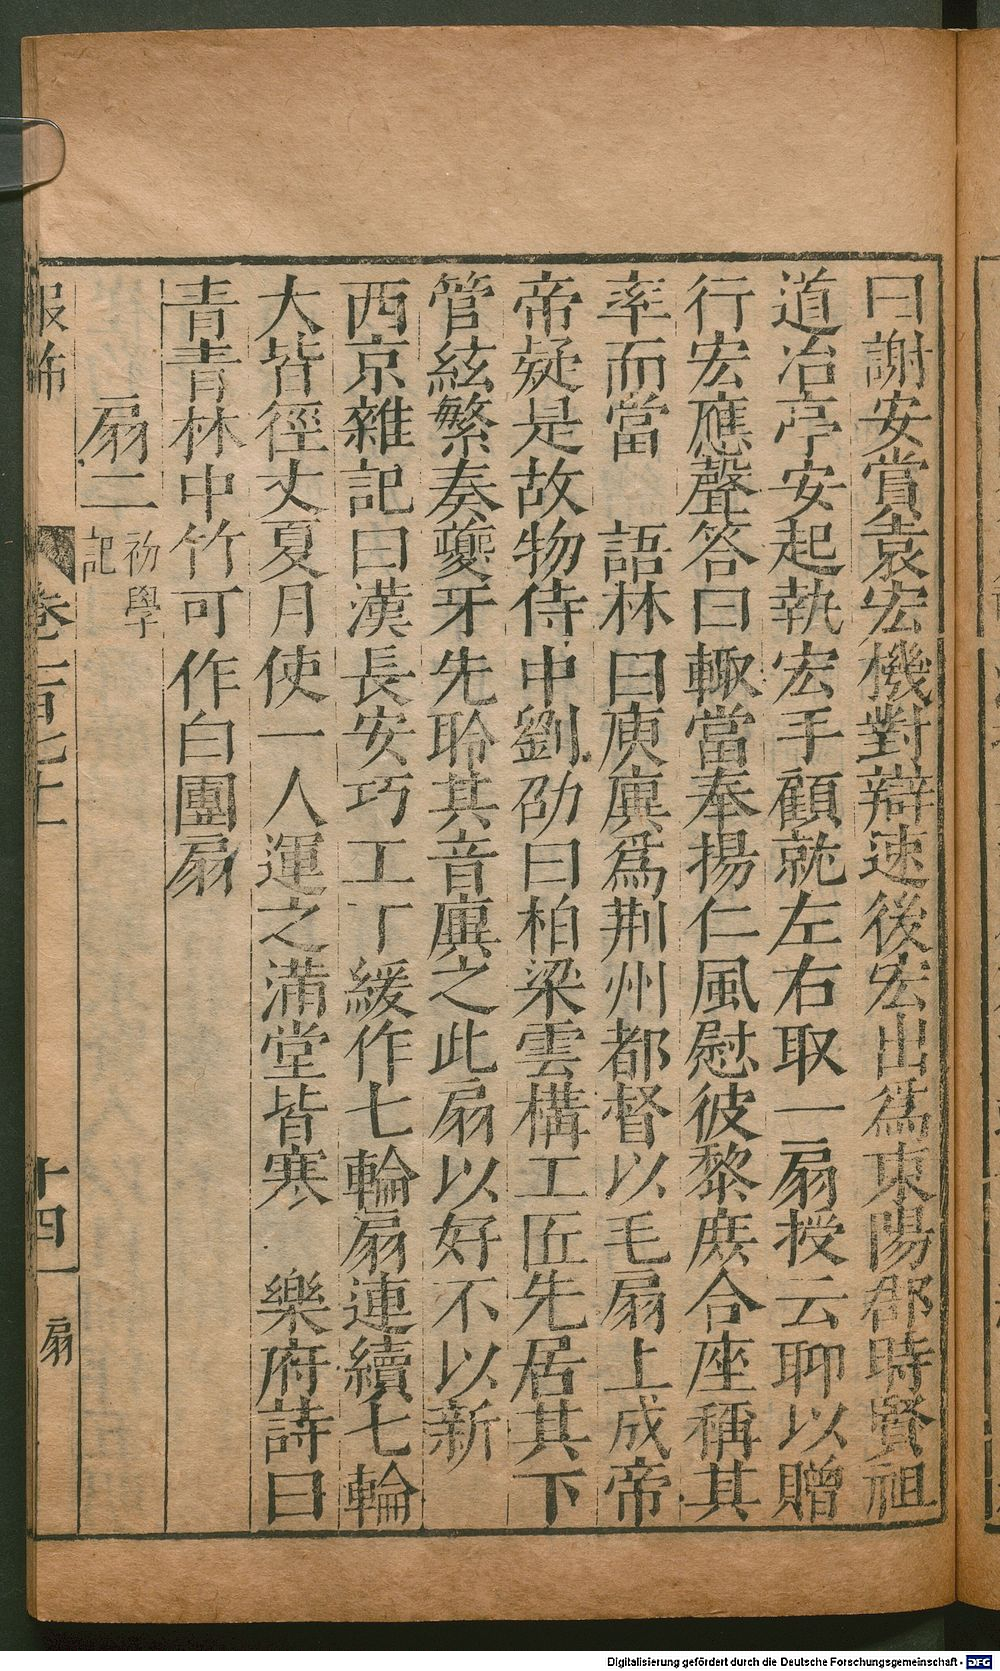 曰謝安賞袁宏機對辯速後宏出爲東陽郡時賢祖
道冶亭安起執宏手顧就左右取一扇授云聊以贈
行宏應聲答曰輙當奉揚仁風慰彼黎庶合座稱其
率而當　語林曰庾廙爲荆州都督以毛扇上成帝
帝疑是故物侍中劉劭曰柏梁雲構工匠先居其下
管絃繁奏夔牙先聆其音廙之此扇以好不以新
西京雜記曰漢長安巧工丁緩作七輪扇連續七輪
大皆徑丈夏月使一人運之滿堂皆寒　樂府詩曰
青青林中竹可作白團扇
扇二初學記
服飾 卷一百七十 十四 扇
Digitalisierung gefördert durch die Deutsche Forschungsgemeinschaft - DFG